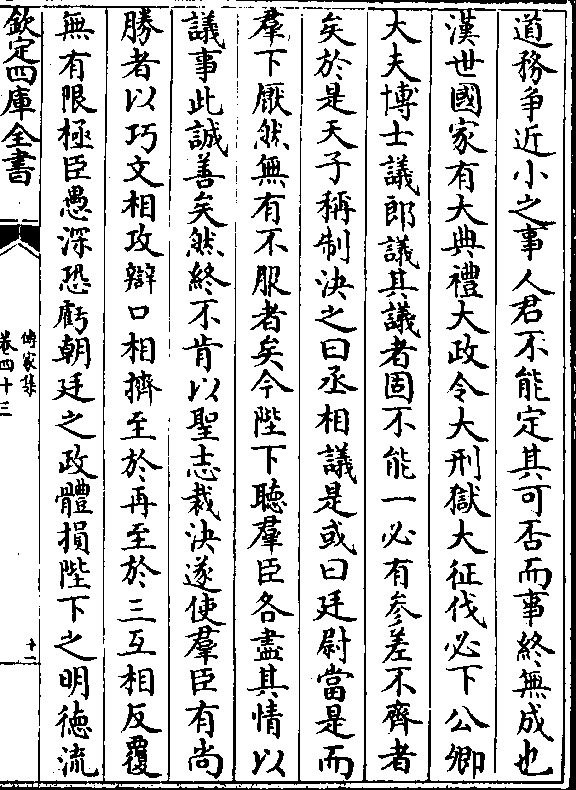 道務争近小之事人君不能定其可否而事終無成也
漢世國家有大典禮大政令大刑獄大征伐必下公卿
大夫博士議郎議其議者固不能一必有參差不齊者
矣於是天子稱制決之曰丞相議是或曰廷尉當是而
羣下厭然無有不服者矣今陛下聽羣臣各盡其情以
議事此誠善矣然終不肯以聖志裁決遂使羣臣有尚
勝者以巧文相攻辯口相擠至於再至於三互相反覆
無有限極臣愚深恐虧朝廷之政體損陛下之明徳流
欽定四庫全書
傳家集
卷四十三
十二